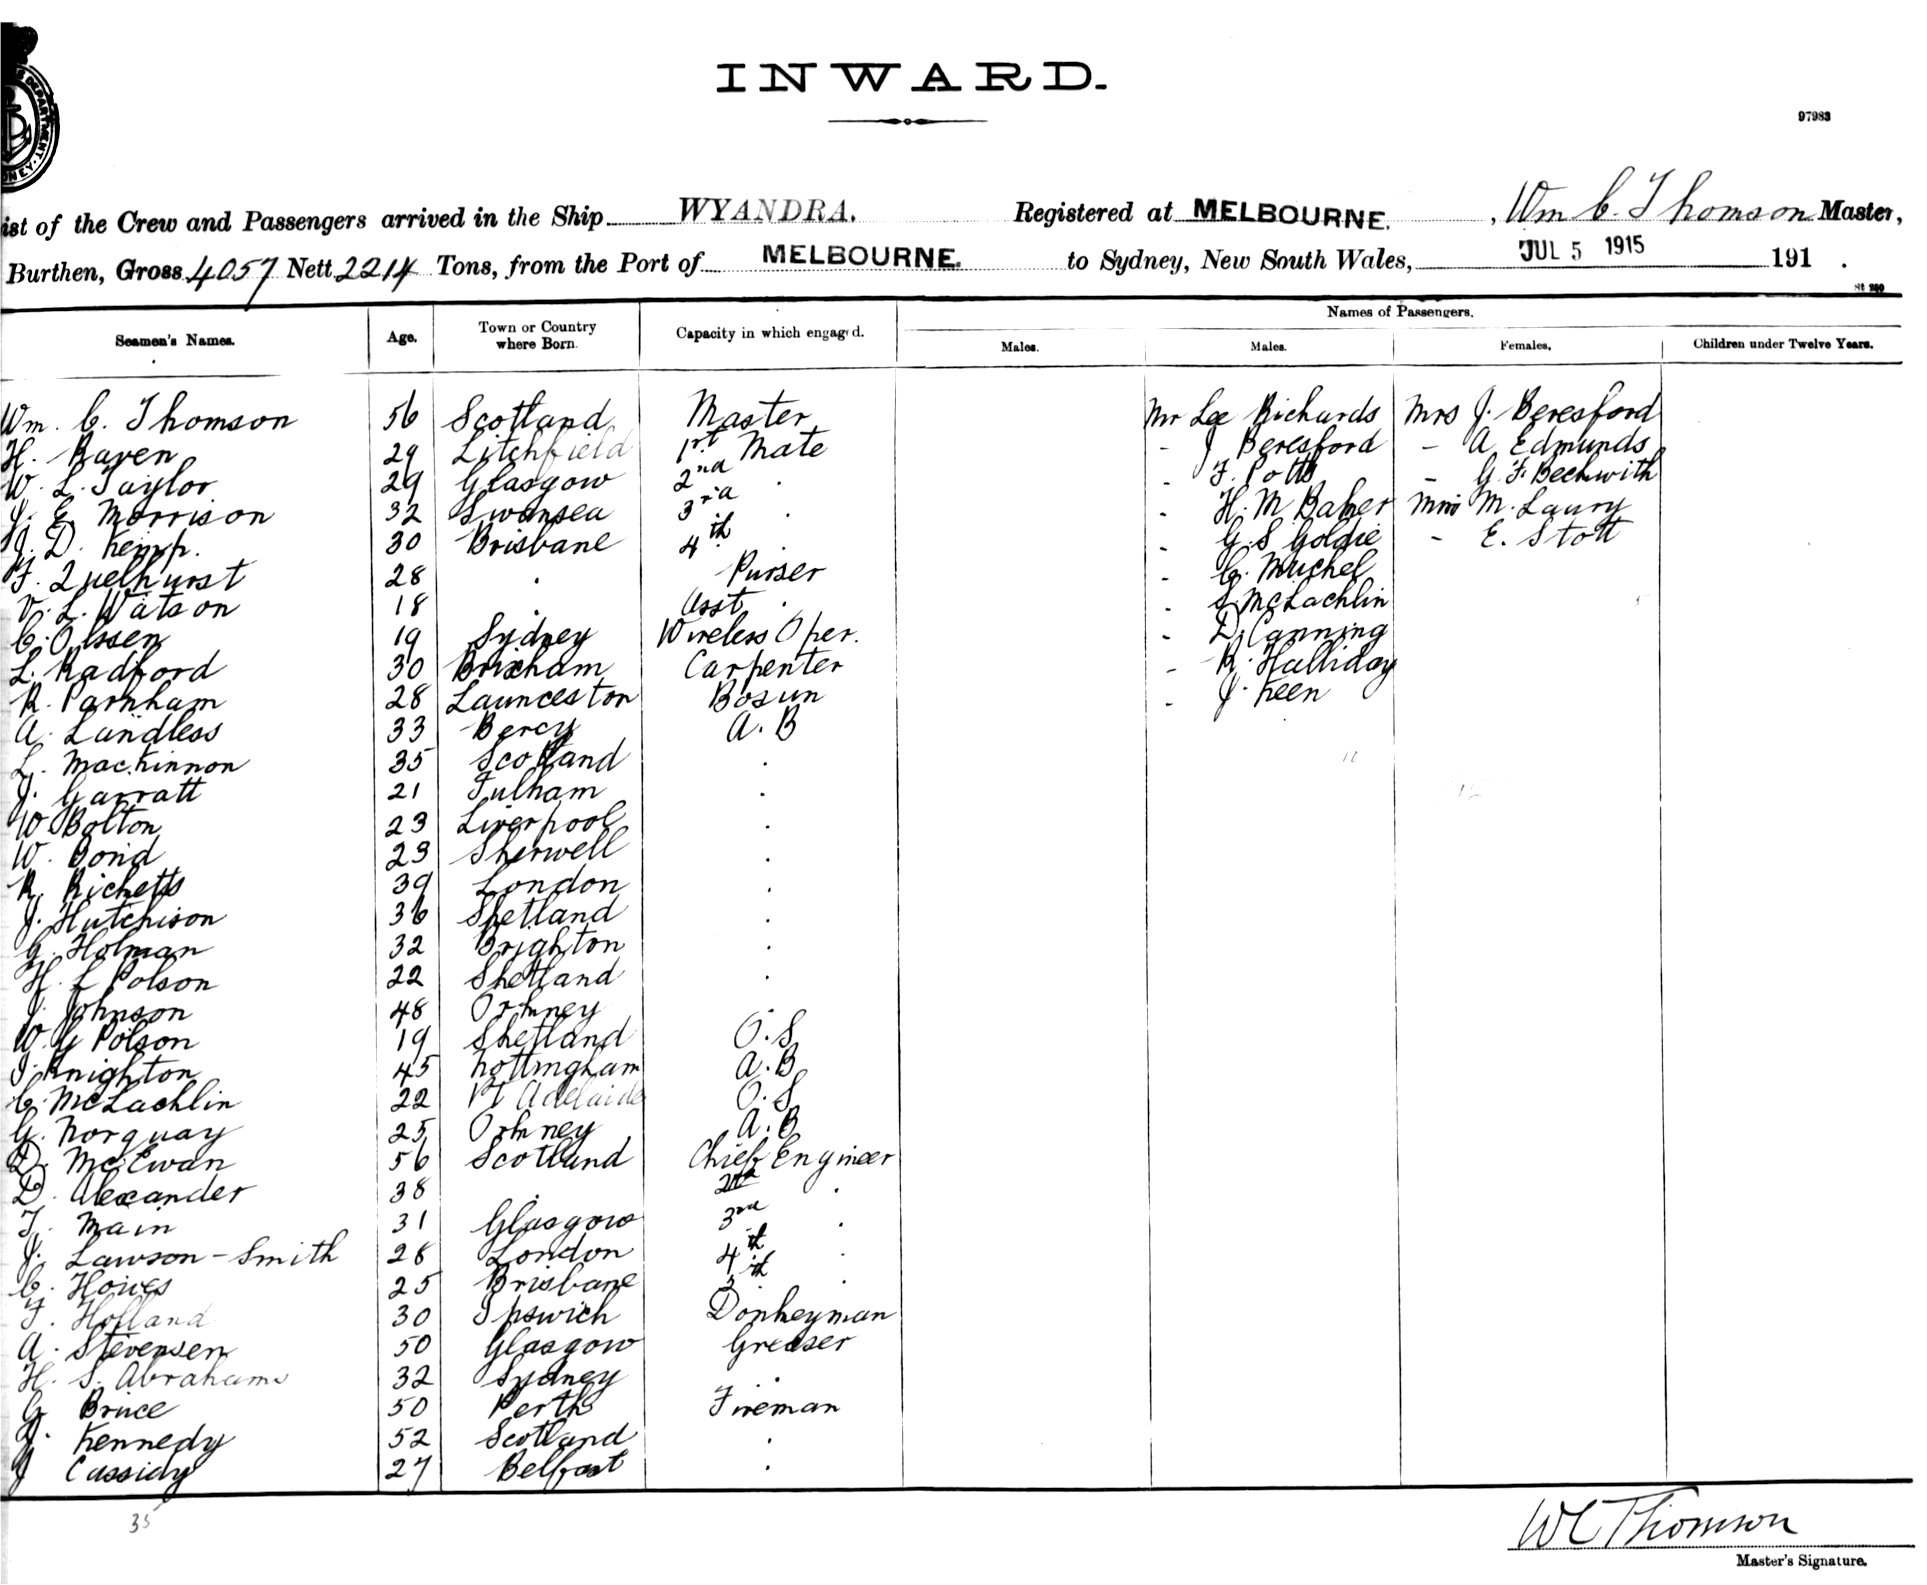 INWARD.
97983
ist of the Crew and Passengers arrived in the Ship WYANDRA. Registered at MELBOURNE. , Wm C. Thomson Master,
Burthen, Gross 4057 Nett 2214 Tons, from the Port of MELBOURNE. to Sydney, New South Wales, JUL 5 1915 191 .
St 250
Names of Passengers.
Seamen's Names. Age. Town or Country where Born. Capacity in which engaged. Males. Males. Females. Children under Twelve Years.
Wm. C. Thomson 56 Scotland Master Mr Lee Richards Mrs J. Beresford
H. Raven 29 Litchfield 1st Mate - J Beresford - A Edmunds
W. L. Taylor 29 Glasgow 2nd . - F. Potts - G. F. Beckwith
J. E. Morrison 32 Swansea 3rd . - H. M Baker Miss M. Laury
J. D. Kemp. 30 Brisbane 4th . - G. S Goldie - E. Stott
F. Quelhurst 28 . Purser - C. Muchel
V. L. Watson 18 . Asst . - S. McLachlin
C. Olssen 19 Sydney Wireless Oper. - D. Canning
L. Radford 30 Brixham Carpenter - R. Halliday
R. Parnham 28 Launceston Bosun - J. Keen
A. Landless 33 Bercy A. B
L. Mackinnon 35 Scotland .
J. Garratt 21 Fulham .
W Bolton 23 Liverpool .
W. Bond 23 Sherwell .
R. Ricketts 39 London .
J. Hutchison 36 Shetland .
G. Holman 32 Brighton .
H. L Polson 22 Shetland .
J. Johnson 48 Orkney .
W. G Polson 19 Shetland O. S
J. Knighton 45 Nottingham A. B
C. McLachlin 22 Pt Adelaide O. S
G. Norquay 25 Orkney A. B
D. McEwan 56 Scotland Chief Engineer
D. Alexander 38 . 2nd .
T. Main 31 Glasgow 3rd .
J. Lawson-Smith 28 London 4th .
C. Howes 25 Brisbane 5th .
F. Holland 30 Ipswich Donkeyman
A. Stevensen 50 Glasgow Greaser
H. S. Abrahams 32 Sydney .
G Bruce 50 Perth Fireman
J. Kennedy 52 Scotland .
J Cassidy 27 Belfast .
35
WC Thomson
Master's Signature.